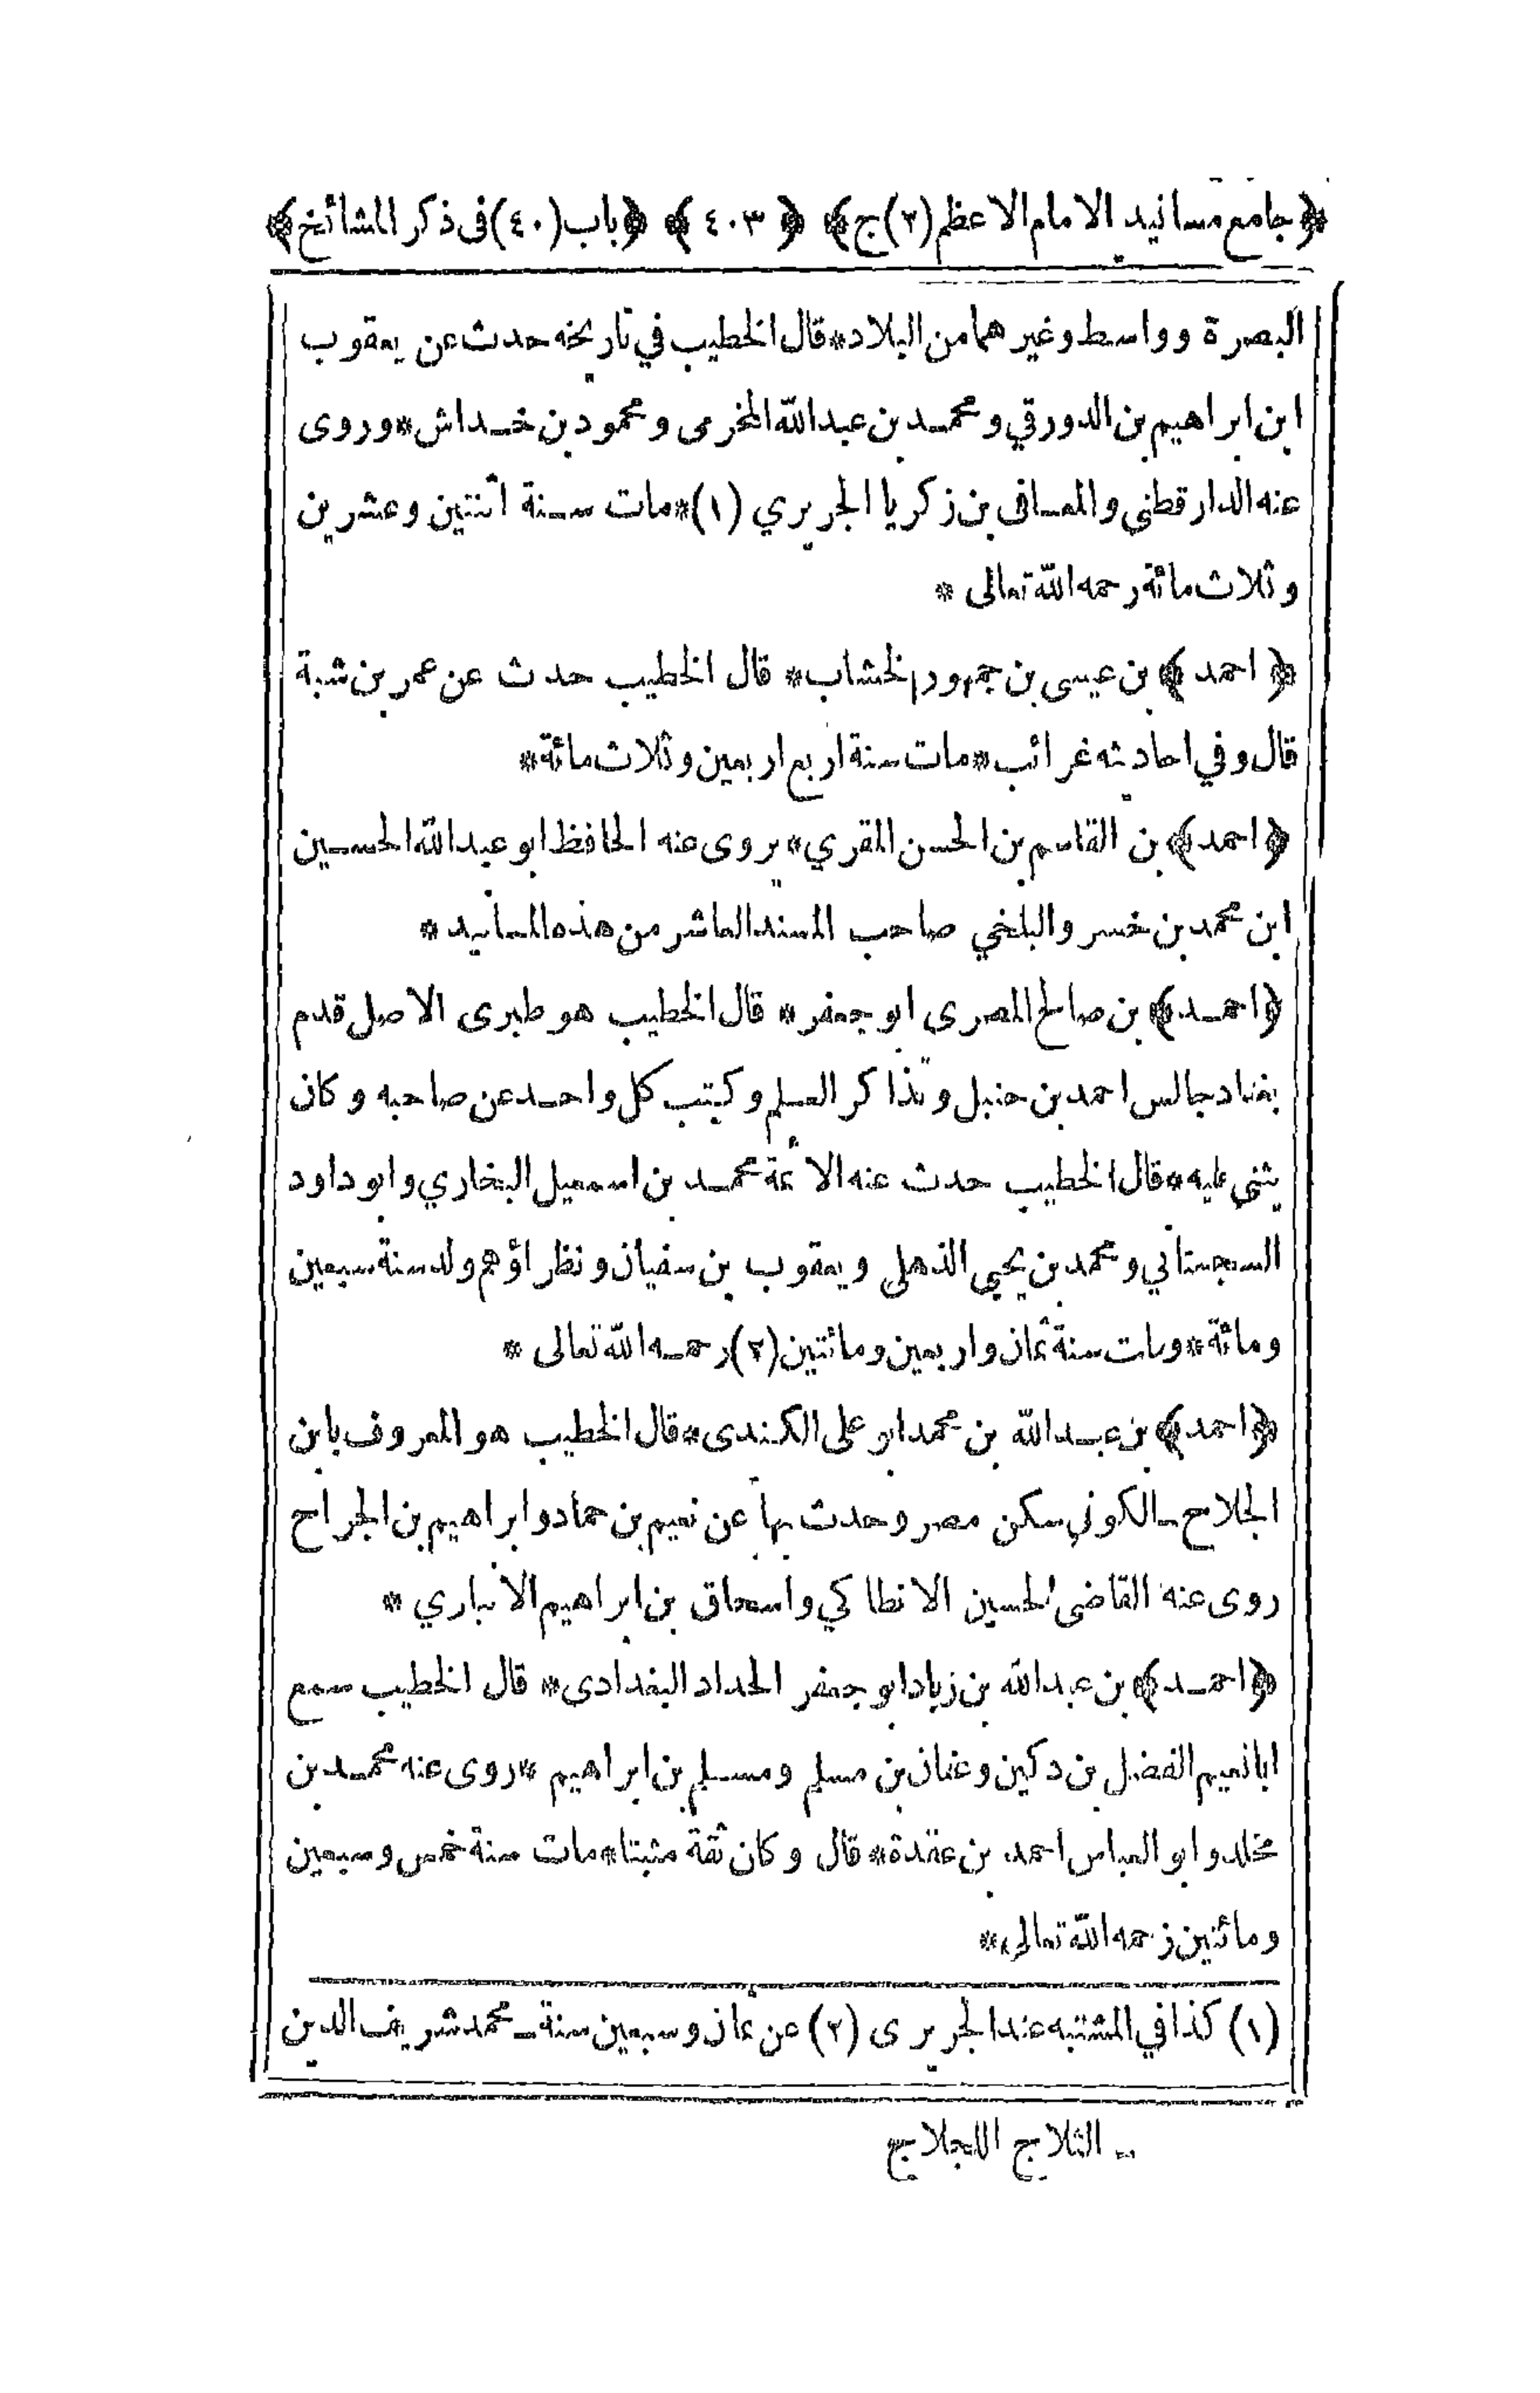 ﴿جامع مسانيد الامام الاعظم (٢) ج﴾ ﴿٤٠٣﴾ ﴿باب (٤٠) فى ذكر المشائخ﴾
البصرة وواسط وغيرهما من البلاد * قال الخطيب في تاريخه حدث عن يعقوب
ابن ابراهيم بن الدورقي ومحمد بن عبدالله المخرمى ومحمود بن خداش * وروى
عنه الدارقطنى والمعافى بن زكريا الجريري (١) * مات سنة اثنتين وعشرين
وثلاث مائة رحمه الله تعالى *
﴿احمد﴾ بن عيسى بن جمهور الخشاب * قال الخطيب حدث عن عمر بن شبة
قال وفي احاديثه غرائب * مات سنة اربع اربعين وثلاث مائة *
﴿احمد﴾ بن القاسم بن الحسن المقري * يروى عنه الحافظ ابو عبدالله الحسين
ابن محمد بن خسرو البلخي صاحب المسند العاشر من هذه المسانيد *
﴿احمد﴾ بن صالح المصرى ابو جعفر * قال الخطيب هو طبرى الاصل قدم
بغداد جالس احمد بن حنبل وتذاكر العلم وكتب كل واحد عن صاحبه وكان
يثنى عليه * قال الخطيب حدث عنه الائمة محمد بن اسمعيل البخاري وابو داود
السجستاني ومحمد بن يحيى الذهلى ويعقوب بن سفيان ونظراؤهم ولد سنة سبعين
ومائة * ومات سنة ثمان واربعين ومائتين (٢) رحمه الله تعالى *
﴿احمد﴾ بن عبدالله بن محمد ابو على الكندى * قال الخطيب هو المعروف بابن
الجلاح ـ الكوفي سكن مصر وحدث بها عن نعيم بن حماد وابراهيم بن الجراح
روى عنه القاضى الحسين الانطاكي واسحاق بن ابراهيم الانباري *
﴿احمد﴾ بن عبدالله بن زياد ابو جعفر الحداد البغدادى * قال الخطيب سمع
ابا نعيم الفضل بن دكين وعفان بن مسلم ومسلم بن ابراهيم * روى عنه محمد بن
مخلد وابو العباس احمد بن عقدة * قال وكان ثقة مثبتا * مات سنة خمس وسبعين
ومائتين رحمه الله تعالى *
(١) كذا في المشتبه عند الجريرى (٢) عن ثمان وسبعين سنة ـ محمد شريف الدين
ـ الثلاج اللجلاج